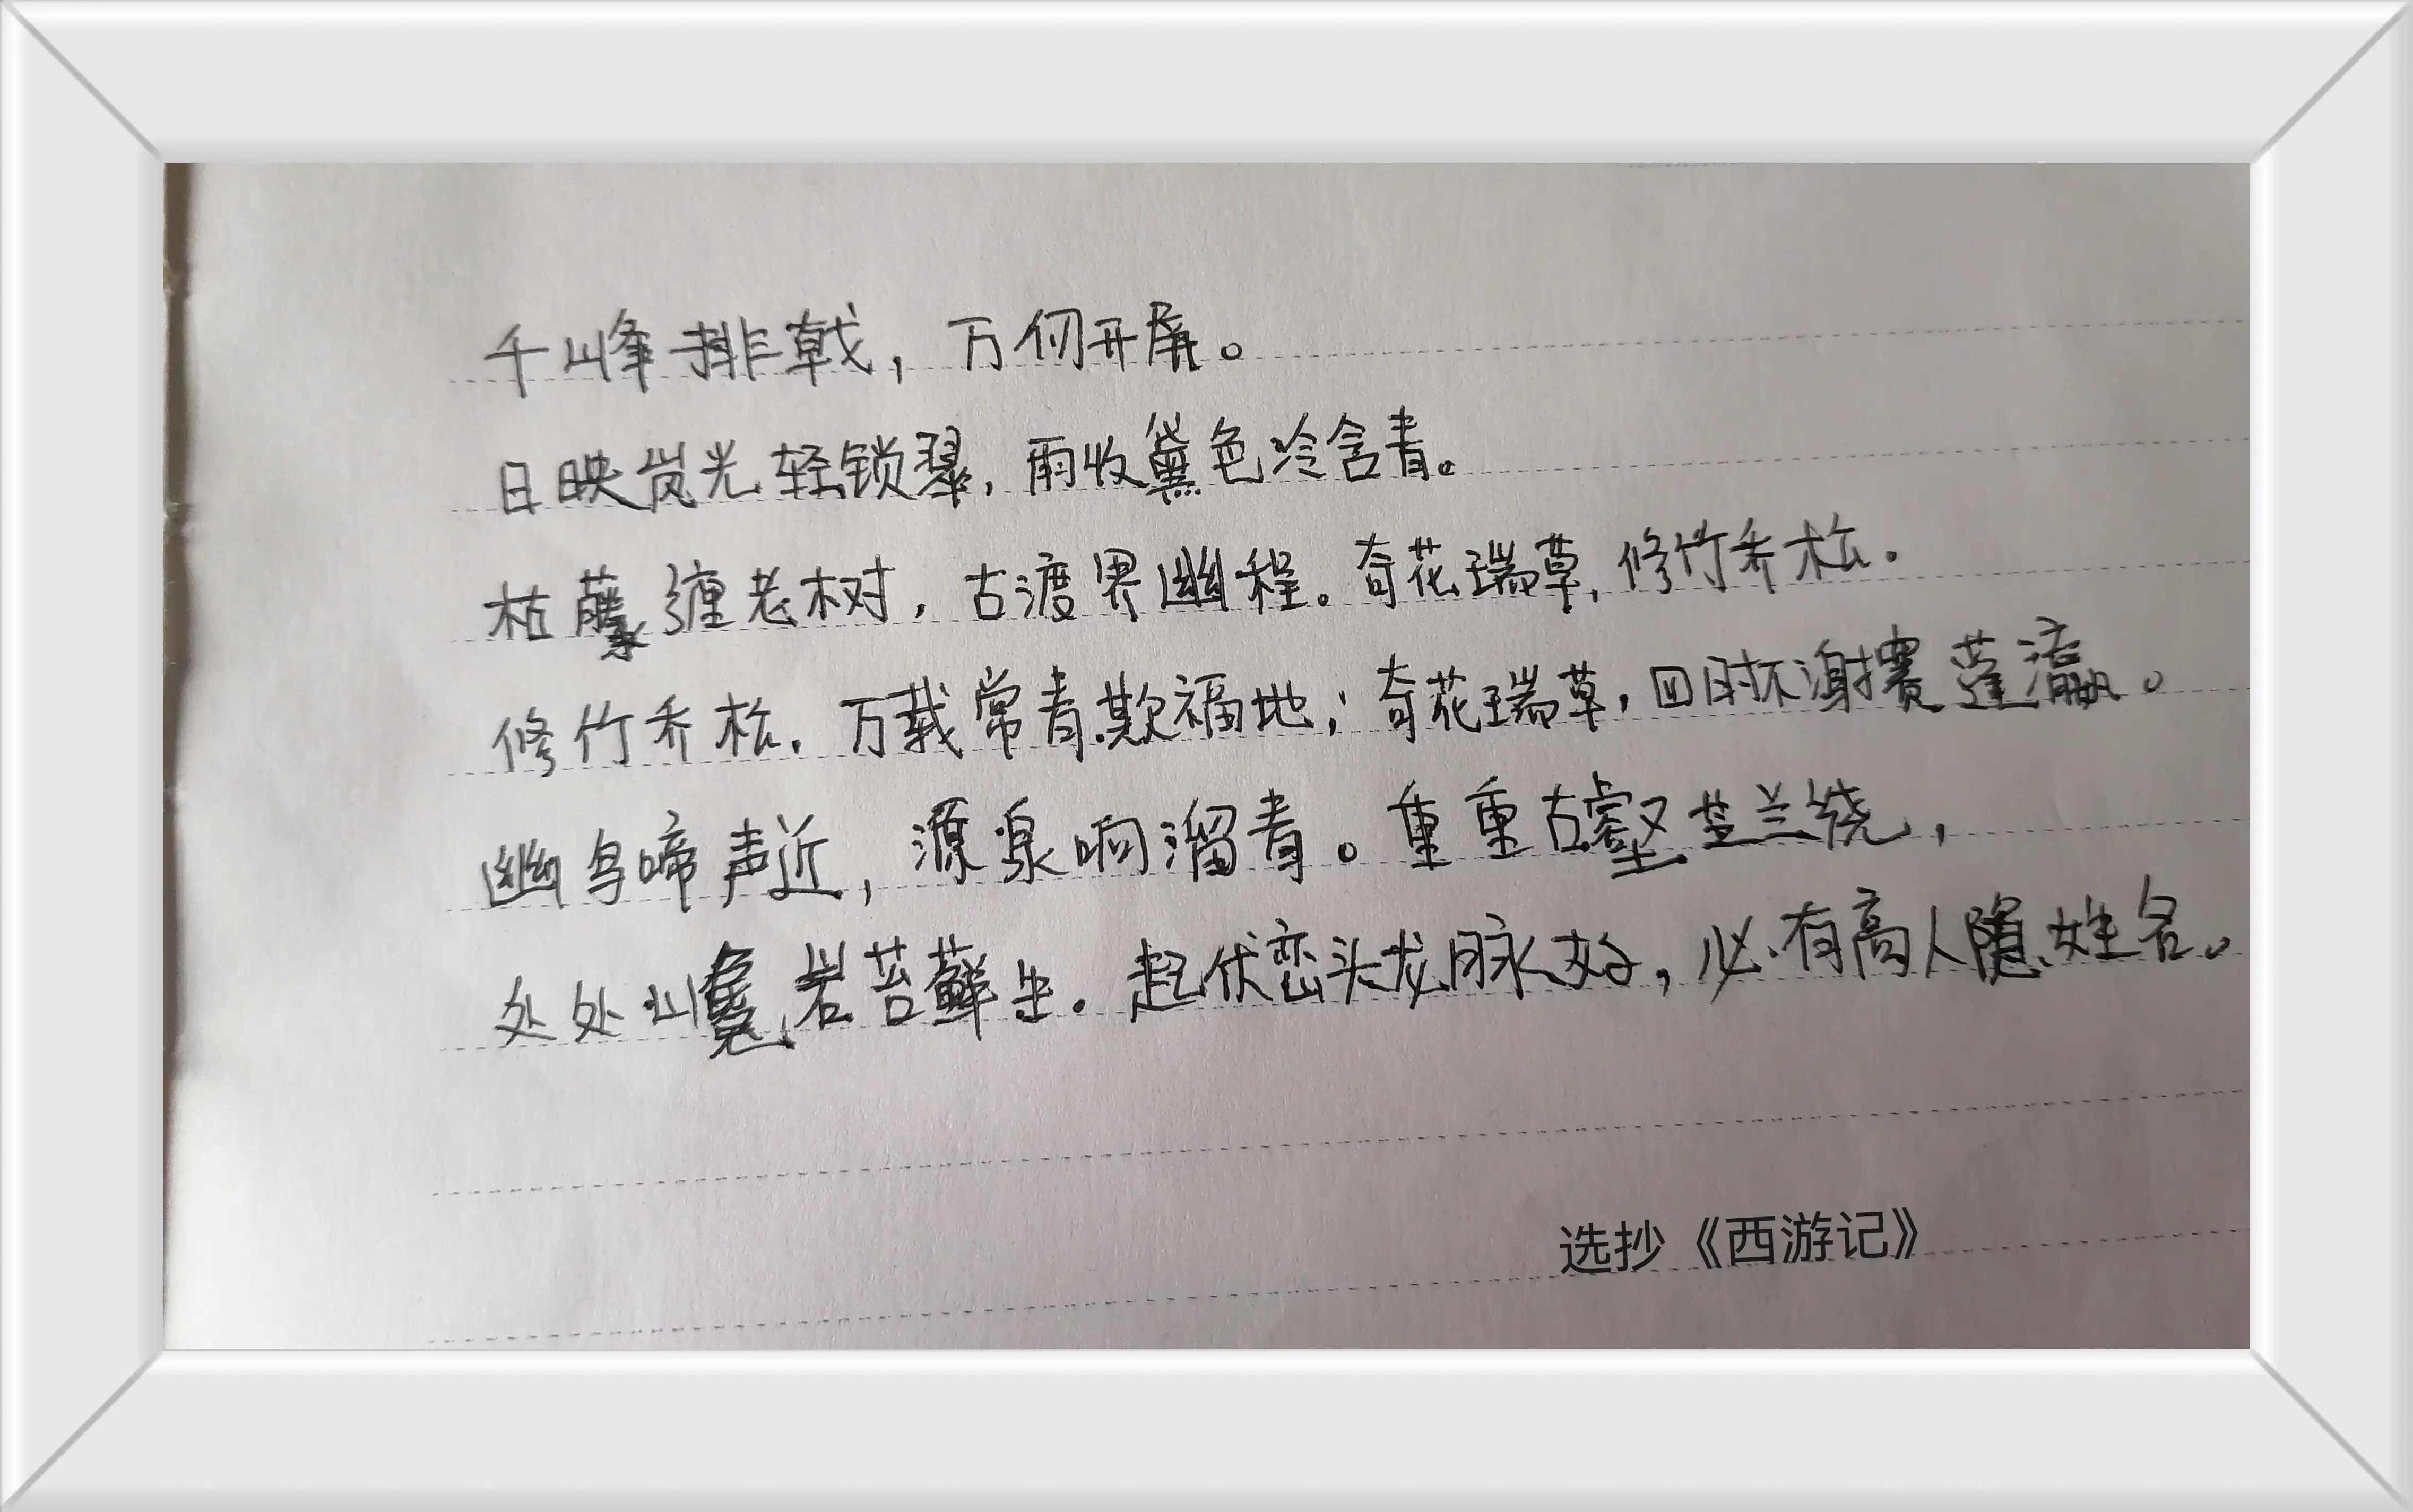 千峰排戟，万仞开屏。
日映岚光轻锁翠，雨收黛色冷含青。
枯藤缠老树，古渡界幽程。奇花瑞草，修竹乔松。
修竹乔松，万载常青欺福地；奇花瑞草，四时不谢赛蓬瀛。
幽鸟啼声近，源泉响溜青。重重古壑芝兰绕，
处处巉岩苔藓生。起伏峦头龙脉好，必有高人隐姓名。
选抄《西游记》